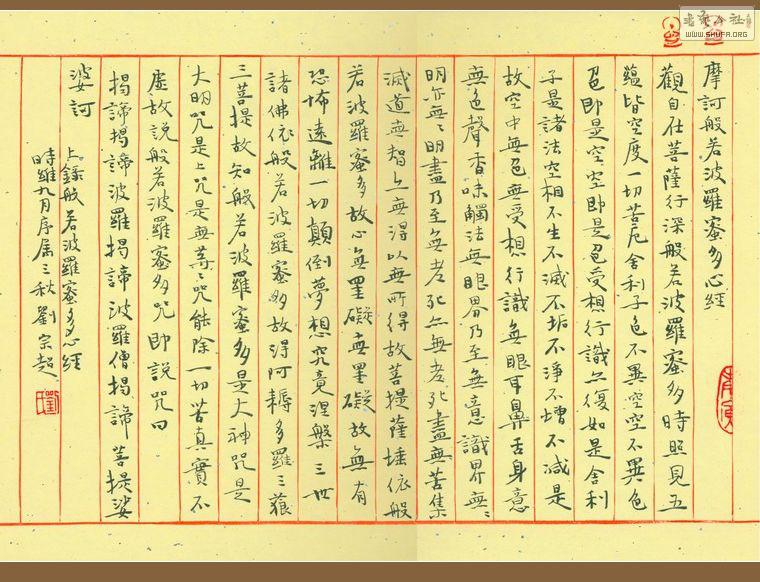 摩訶般若波羅蜜多心經
觀自在菩薩行深般若波羅蜜多時照見五
蘊皆空度一切苦厄舍利子色不異空空不異色
色即是空空即是色受想行識亦復如是舍利
子是諸法空相不生不滅不垢不淨不增不減是
故空中無色無受想行識無眼耳鼻舌身意
無色聲香味觸法無眼界乃至無意識界無〻
明亦無〻明盡乃至無老死亦無老死盡無苦集
滅道無智亦無得以無所得故菩提薩埵依般
若波羅蜜多故心無罣礙無罣礙故無有
恐怖遠離一切顛倒夢想究竟涅槃三世
諸佛依般若波羅蜜多故得阿耨多羅三藐
三菩提故知般若波羅蜜多是大神咒是
大明咒是上咒是無等〻咒能除一切苦真實不
虛故說般若波羅蜜多咒即說咒曰
揭諦揭諦波羅揭諦波羅僧揭諦菩提娑
婆訶
上錄般若波羅蜜多心經
時維九月序屬三秋劉宗超
WWW.SHUFA.ORG